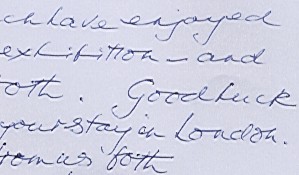 ch have enjoyed
exhibition - and
oth. Good Luck
your stay in London.
from us both